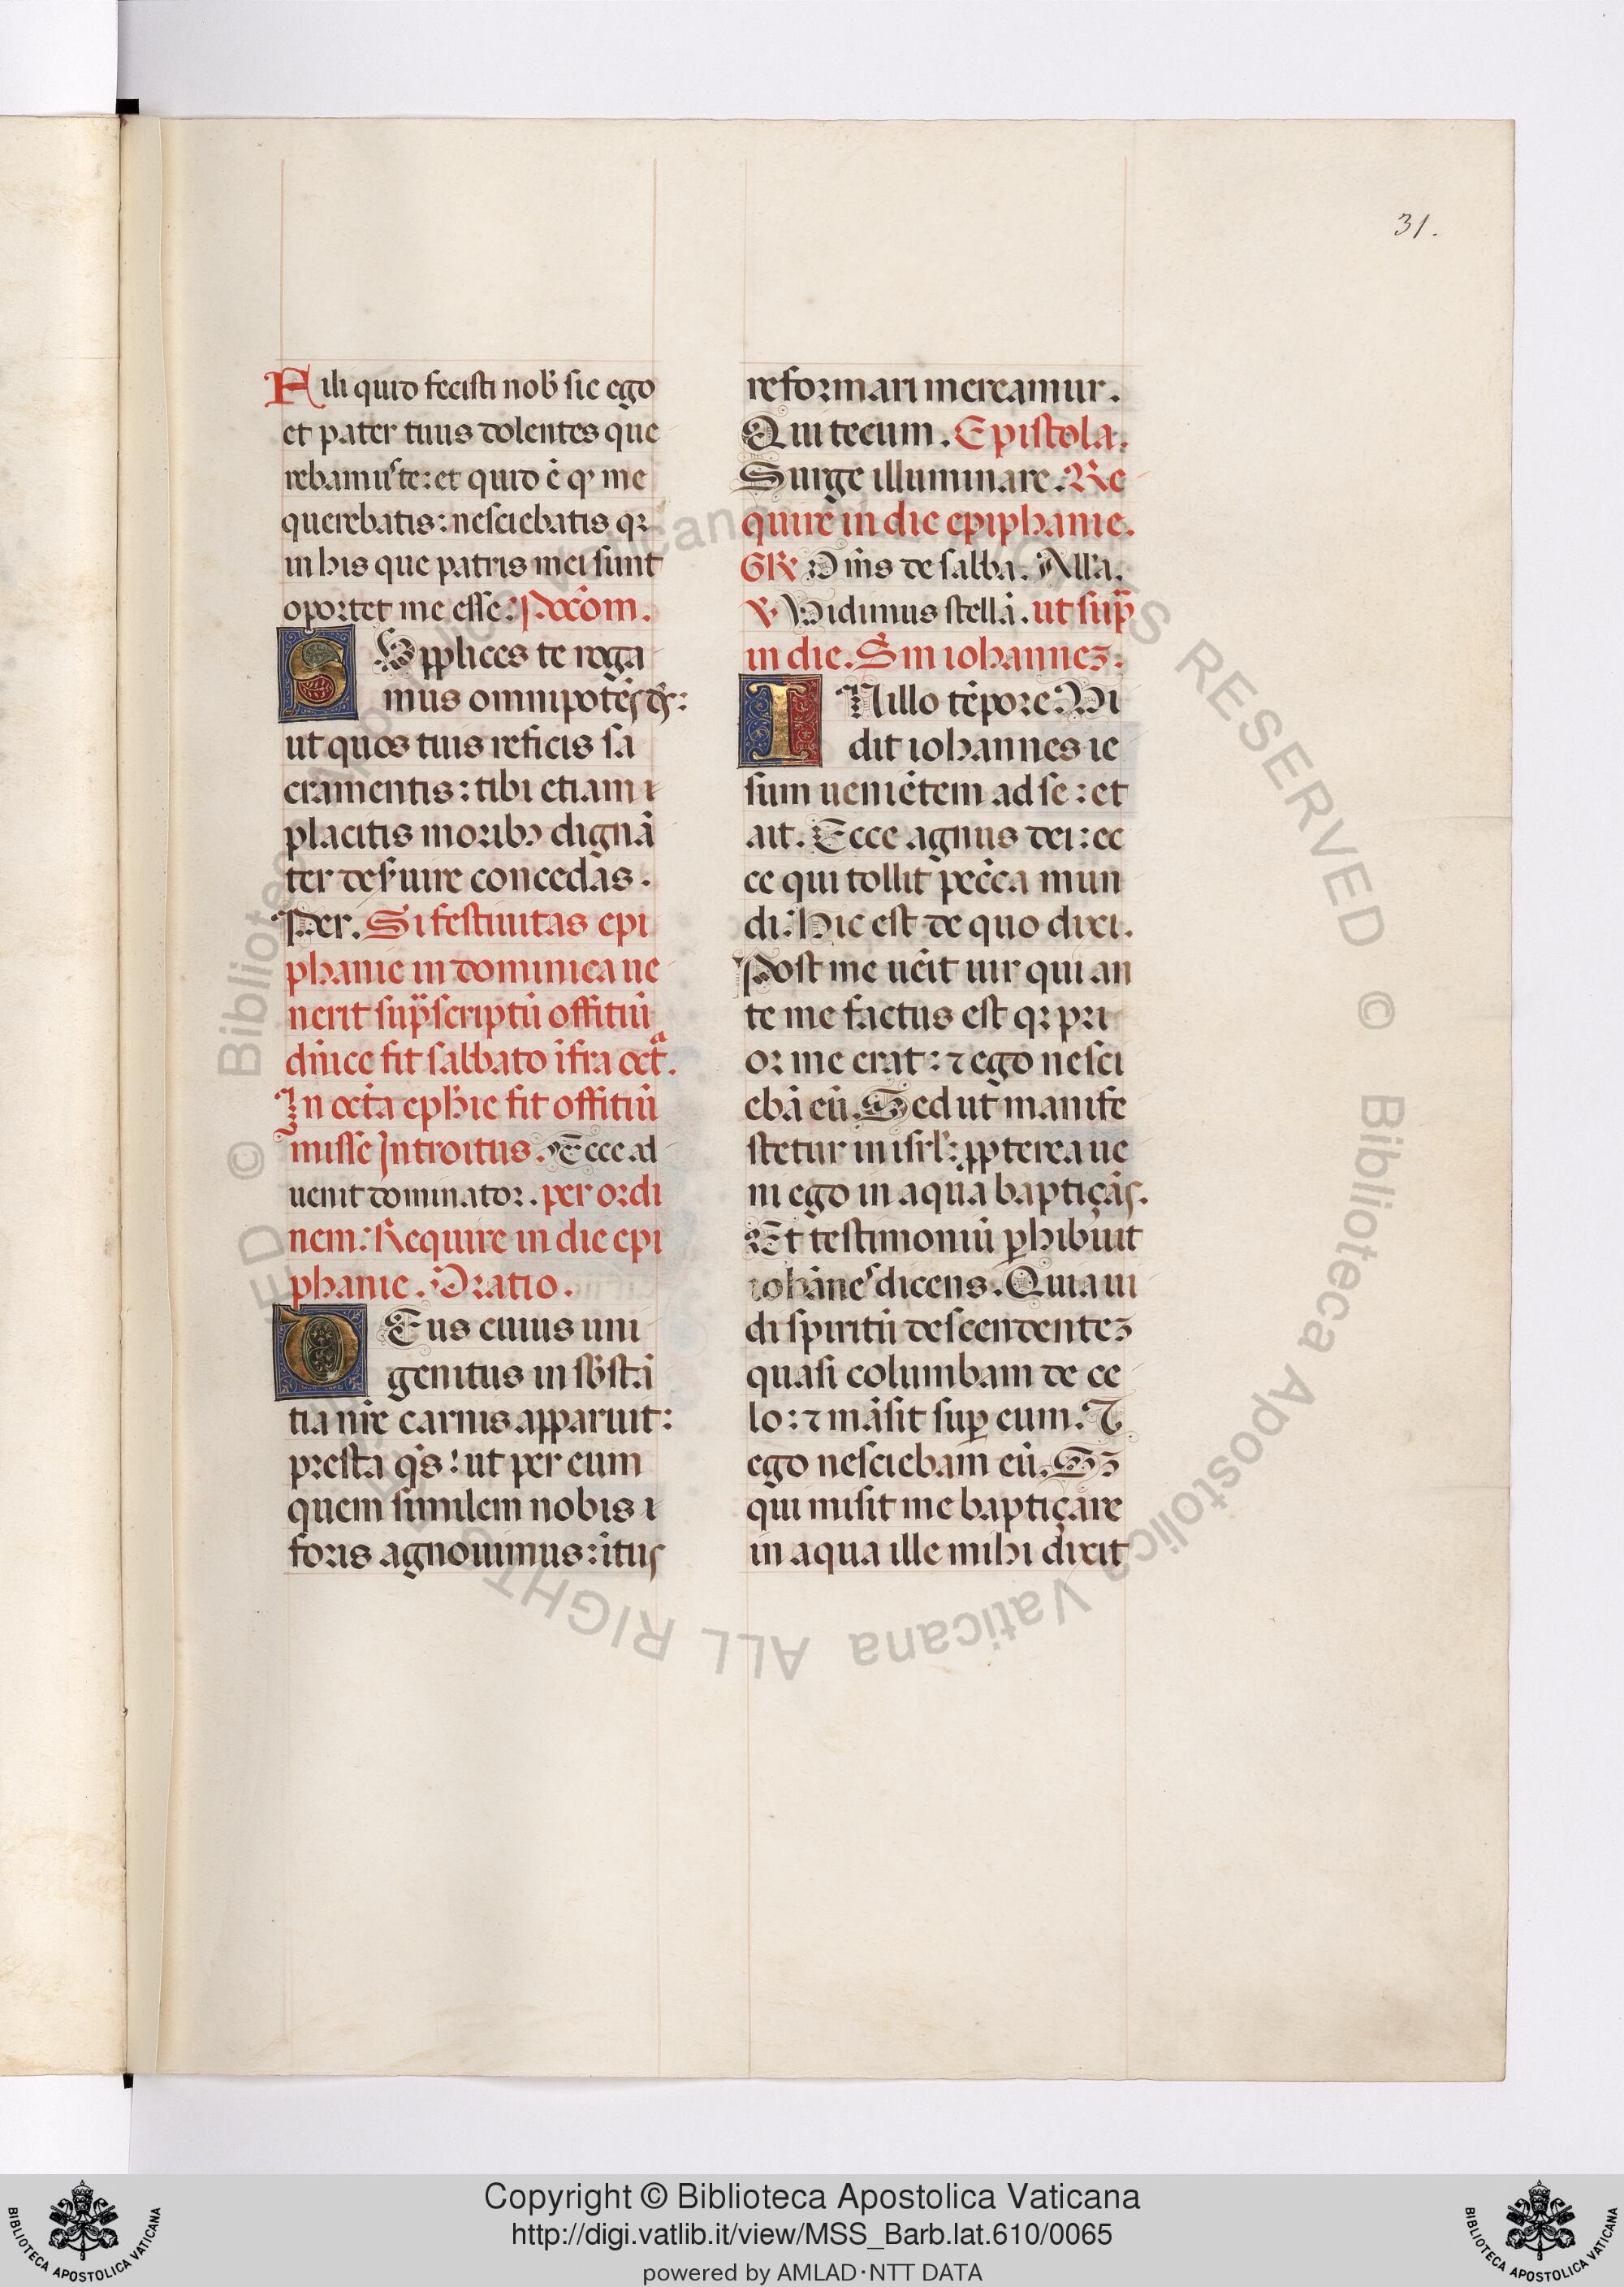 31.
Fili quid fecisti nob̄ sic ego
et pater tuus dolentes que
rebamus te: et quid ē qꝙ me
querebatis: nesciebatis qꝛ
in his que patris mei sunt
oportet me esse: Poc̄om.
SUpplices te roga
mus omnipotēs ds̄:
ut quos tuis reficis sa
cramentis: tibi etiam ı
placitis moribꝫ dignā
ter des̄uire concedas.
Per. Si festiuitas epi
phanie in dominica ue
nerit sup̄scriptū offitiū
dn̄ice fit sabbato īfra octᵃ.
In octā eph̄ie fit offitiū
misse Introitus. Ecce ad
uenit dominator. per ordi
nem: Require in die epi
phanie. Oratio.
DEus cuius uni
genitus in sb̄stā
tia nr̄e carnis apparuit:
presta qs̄: ut per eum
quem similem nobis ı
foris agnouimus: ītus
reformari mereamur.
Qui tecum. Epistola.
Surge illuminare. Re
quire in die epiphanie.
GR Oms de sabba. All'a.
℣ Vidimus stellā. ut sup̄
in die. S̄m iohannez:
IN illo tēpore Vi
dit iohannes ie
sum ueniētem ad se: et
ait. Ecce agnus dei: ec
ce qui tollit pecc̄a mun
di: Hic est de quo dixi.
Post me uēit uir qui an
te me factus est qꝛ pri
or me erat: ⁊ ego nesci
ebā eū. Sed ut manife
stetur in isrl': ꝓpterea ue
ni ego in aqua baptiçās.
Et testimoniū ꝑhibuit
iohānes dicens. Quia ui
di spiritū descendentez
quasi columbam de ce
lo: ⁊ māsit suꝑ eum. ⁊
ego nesciebam eū. Sꝫ
qui misit me baptiçare
in aqua ille mihi dixit
© Biblioteca Apostolica Vaticana ALL RIGHTS RESERVED
Copyright © Biblioteca Apostolica Vaticana
http://digi.vatlib.it/view/MSS_Barb.lat.610/0065
powered by AMLAD·NTT DATA
BIBLIOTECA APOSTOLICA VATICANA
BIBLIOTECA APOSTOLICA VATICANA